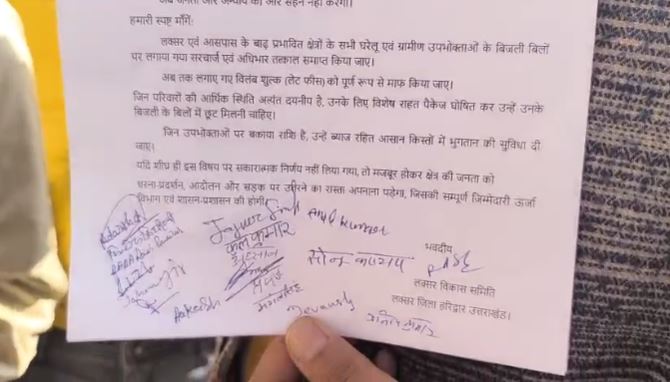 अब जनता और अन्याय को और सहन नहीं करेगी।
हमारी स्पष्ट माँगें:
लक्सर एवं आसपास के बाढ़ प्रभावित क्षेत्रों के सभी घरेलू एवं ग्रामीण उपभोक्ताओं के बिजली बिलों
पर लगाया गया सरचार्ज एवं अधिभार तत्काल समाप्त किया जाए।
अब तक लगाए गए विलंब शुल्क (लेट फीस) को पूर्ण रूप से माफ किया जाए।
जिन परिवारों की आर्थिक स्थिति अत्यंत दयनीय है, उनके लिए विशेष राहत पैकेज घोषित कर उन्हें उनके
बिजली के बिलों में छूट मिलनी चाहिए।
जिन उपभोक्ताओं पर बकाया राशि है, उन्हें ब्याज रहित आसान किस्तों में भुगतान की सुविधा दी
जाए।
यदि शीघ्र ही इस विषय पर सकारात्मक निर्णय नहीं लिया गया, तो मजबूर होकर क्षेत्र की जनता को
धरना-प्रदर्शन, आंदोलन और सड़क पर उतरने का रास्ता अपनाना पड़ेगा, जिसकी सम्पूर्ण जिम्मेदारी ऊर्जा
विभाग एवं शासन-प्रशासन की होगी।
भवदीय
सोनू कश्यप
लक्सर विकास समिति
लक्सर जिला हरिद्वार उत्तराखंड।
Rakesh